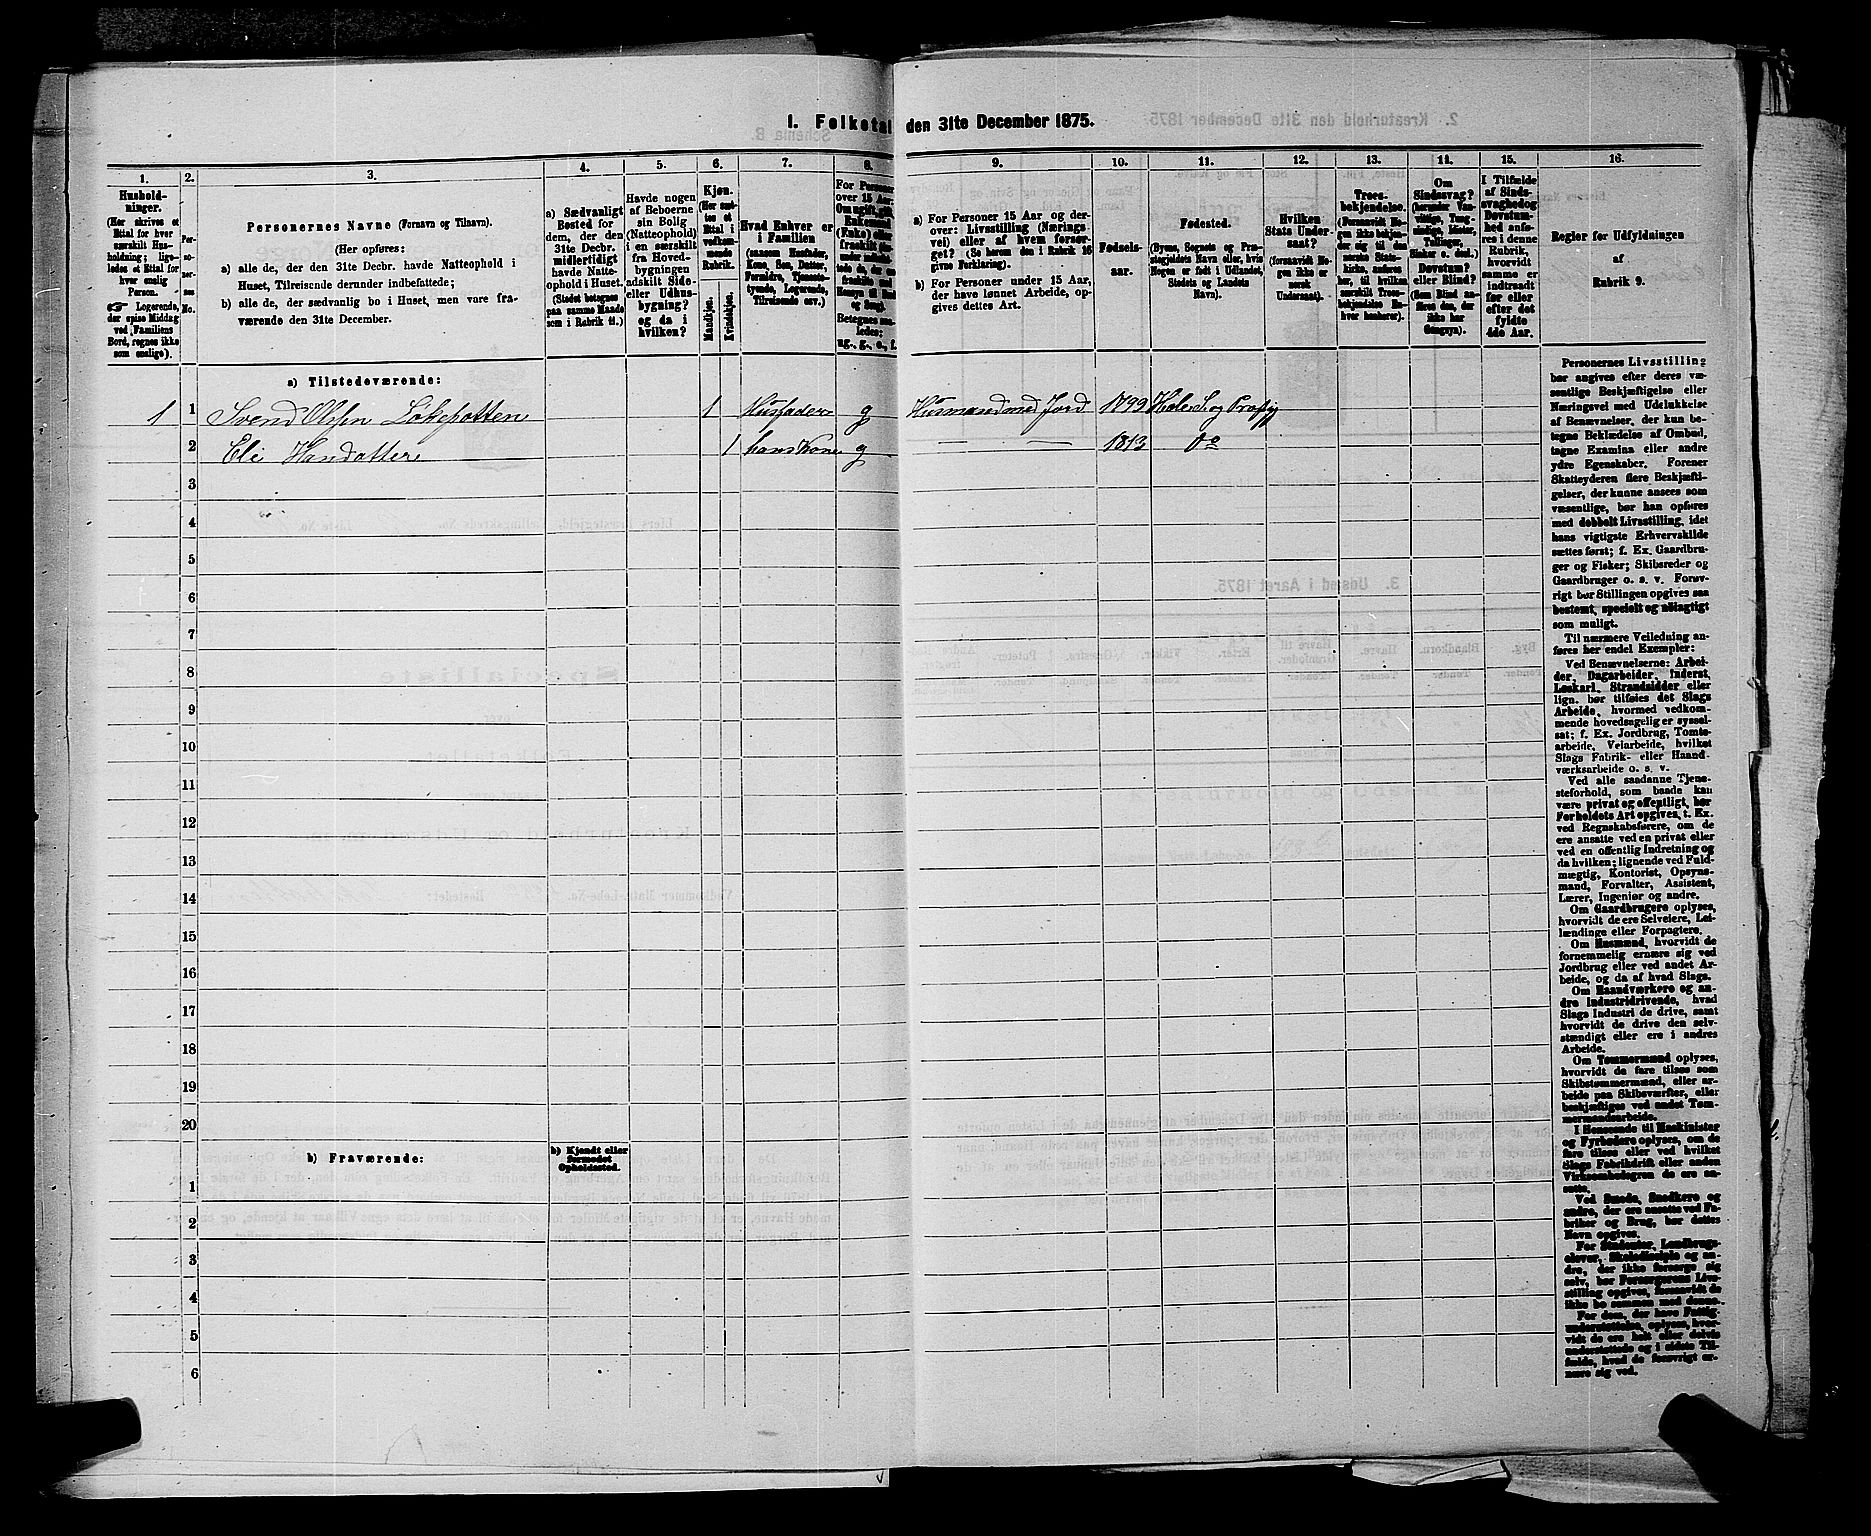 1. Folketal den 31te December 1875.
1.
2.
3.
4.
5.
6.
7.
8.
9.
10.
11.
12.
13.
14.
15.
16.
Hushold-
ninger.
(Her skrives et
Ettal for hver
særskilt Hus-
holdning; lige-
ledes et Ettal for
hver enslig
Person.
☞ Logerende,
der spise Middag
ved Familiens
Bord, regnes ikke
som enslige).
Per-
so-
ner-
nes
No.
Personernes Navne (Fornavn og Tilnavn).
(Her opføres:
a) alle de, der den 31te Decbr. havde Natteophold i
Huset, Tilreisende derunder indbefattede;
b) alle de, der sædvanlig bo i Huset, men vare fra-
værende den 31te December.
a) Sædvanligt
Bosted for
dem, der den
31te Decbr.
midlertidigt
havde Natte-
ophold i Huset.
(Stedet betegnes
paa samme Maade
som i Rubrik 11.)
Havde nogen
af Beboerne
sin Bolig
(Natteophold)
i en særskilt
fra Hoved-
bygningen
adskilt Side-
eller Udhus-
bygning?
og da i
hvilken?
Kjøn.
(Her sæt-
tes et
Ettal i
vedkom-
mende
Rubrik.
Mandkjøn.
Kvindekjøn.
Hvad Enhver er
i Familien
(saasom Husfader,
Kone, Søn, Datter,
Forældre, Tjeneste-
tyende, Logerende,
Tilreisende osv.)
For Personer
over 15 Aar:
Om ugift, gift,
Enkemand
(Enke) eller
fraskilt
Betegnes saa-
ledes:
ug., g., e., f.
a) For Personer 15 Aar og der-
over: Livsstilling (Nærings-
vei) eller af hvem forsør-
get? (Se herom den i Rubrik 16
givne Forklaring).
b) For Personer under 15 Aar,
der have lønnet Arbeide, op-
gives dettes Art.
Fødsels-
aar.
Fødested.
(Byens, Sognets og Præ-
stegjeldets Navn eller, hvis
Nogen er født i Udlandet,
Stedets og Landets
Navn).
Hvilken
Stats Under-
saat?
(forsaavidt No-
gen ikke er
norsk
Undersaat).
Troes-
bekjendelse.
(Forsaavidt No-
gen ikke bekjen-
der sig til den
norske Stats-
kirke, anføres
her, til hvilken
særskilt Troes-
bekjendelse En-
hver henhører).
Om
Sindssvag?
(herunder Van-
vittige, Tung-
sindige, Idioter,
Tullinger,
Sinker o. desl.)
Døvstum?
eller Blind?
(Som Blind an-
føres den, der
ikke har
Gangsyn).
I Tilfælde
af Sinds-
svaghed og
Døvstum-
hed anfø-
res i denne
Rubrik,
hvorvidt
samme er
indtraadt
før eller
efter det
fyldte
4de Aar.
Regler for Udfyldningen
af
Rubrik 9.
a) Tilstedeværende:
1 1 Svend Olsen Løkepotten 1 Husfader g Husmand med Jord 1799 Hole S. og Præstgj
2 Eli Hansdatter 1 hans Kone g — — 1813 Do
3
4
5
6
7
8
9
10
11
12
13
14
15
16
17
18
19
20
b) Fraværende:
b) Kjendt eller
formodet
Opholdssted.
1
2
3
4
5
6
Personernes Livsstilling
bør angives efter deres væ-
sentlige Beskjæftigelse eller
Næringsvei med Udelukkelse
af Benævnelser, der kun be-
tegne Beklædelse af Ombud,
tagne Examina eller andre
ydre Egenskaber. Forener
Skatteyderen flere Beskjæfti-
gelser, der kunne ansees som
væsentlige, bør han opføres
med dobbelt Livsstilling, idet
hans vigtigste Erhvervskilde
sættes først; f. Ex. Gaardbru-
ger og Fisker; Skibsreder og
Gaardbruger o. s. v. Forøv-
rigt bør Stillingen opgives saa
bestemt, specielt og nøiagtigt
som muligt.
Til nærmere Veiledning an-
føres her endel Exempler:
Ved Benævnelserne: Arbei-
der, Dagarbeider, Inderst,
Løskarl, Strandsidder eller
lign. bør tilføies det Slags
Arbeide, hvormed vedkom-
mende hovedsagelig er syssel-
sat; f. Ex. Jordbrug, Tomte-
arbeide, Veiarbeide, hvilket
Slags Fabrik- eller Haand-
værksarbeide o. s. v.
Ved alle saadanne Tjene-
steforhold, som baade kan
være privat og offentligt, bør
Forholdets Art opgives, t. Ex.
ved Regnskabsførere, om de
ere ansatte ved en privat eller
ved en offentlig Indretning og
da hvilken; lignende ved Fuld-
mægtig, Kontorist, Opsyns-
mand, Forvalter, Assistent,
Lærer, Ingeniør og andre.
Om Gaardbrugere oplyses,
hvorvidt de ere Selveiere, Lei-
lændinge eller Forpagtere.
Om Husmænd, hvorvidt de
fornemmelig ernære sig ved
Jordbrug eller ved andet Ar-
beide, og da af hvad Slags.
Om Haandværkere og an-
dre Industridrivende, hvad
Slags Industri de drive, samt
hvorvidt de drive den selv-
stændigt eller ere i andres
Arbeide.
Om Tømmermænd oplyses,
hvorvidt de fare tilsøs som
Skibstømmermænd, eller ar-
beide paa Skibsværfter, eller
beskjæftiges ved andet Tøm-
mermandsarbeide.
I Henseende til Maskinister
og Fyrbødere oplyses, om de
fare tilsøs eller ved hvilket
Slags Fabrikdrift eller anden
Virksomhedsgren de ere an-
satte.
Ved Smede, Snedkere og
andre, der ere ansatte ved Fa-
briker og Brug, bør dettes
Navn opgives.
For Studenter, Landbrugs-
elever, Skoledisciple og an-
dre, der ikke forsørge sig
selv, bør Forsørgerens Livs-
stilling opgives, forsaavidt de
ikke bo sammen med denne.
For dem, der have Fattig-
understøttelse, oplyses, hvor-
vidt de ere helt eller delvis
understøttede og i sidste Til-
fælde, hvad de forøvrigt er-
nære sig ved.